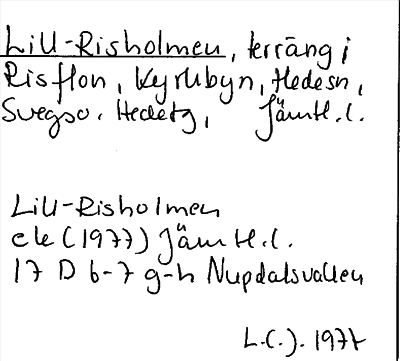 Lill-Risholmen, terräng i
Risflon, Kyrkbyn, Hedesn,
Svegso. Hedetg, Jämtl.l.
Lill-Risholmen
ek (1977) Jämtl.l.
17 D 6-7 g-h Nupdalsvallen
L.C.J. 1977